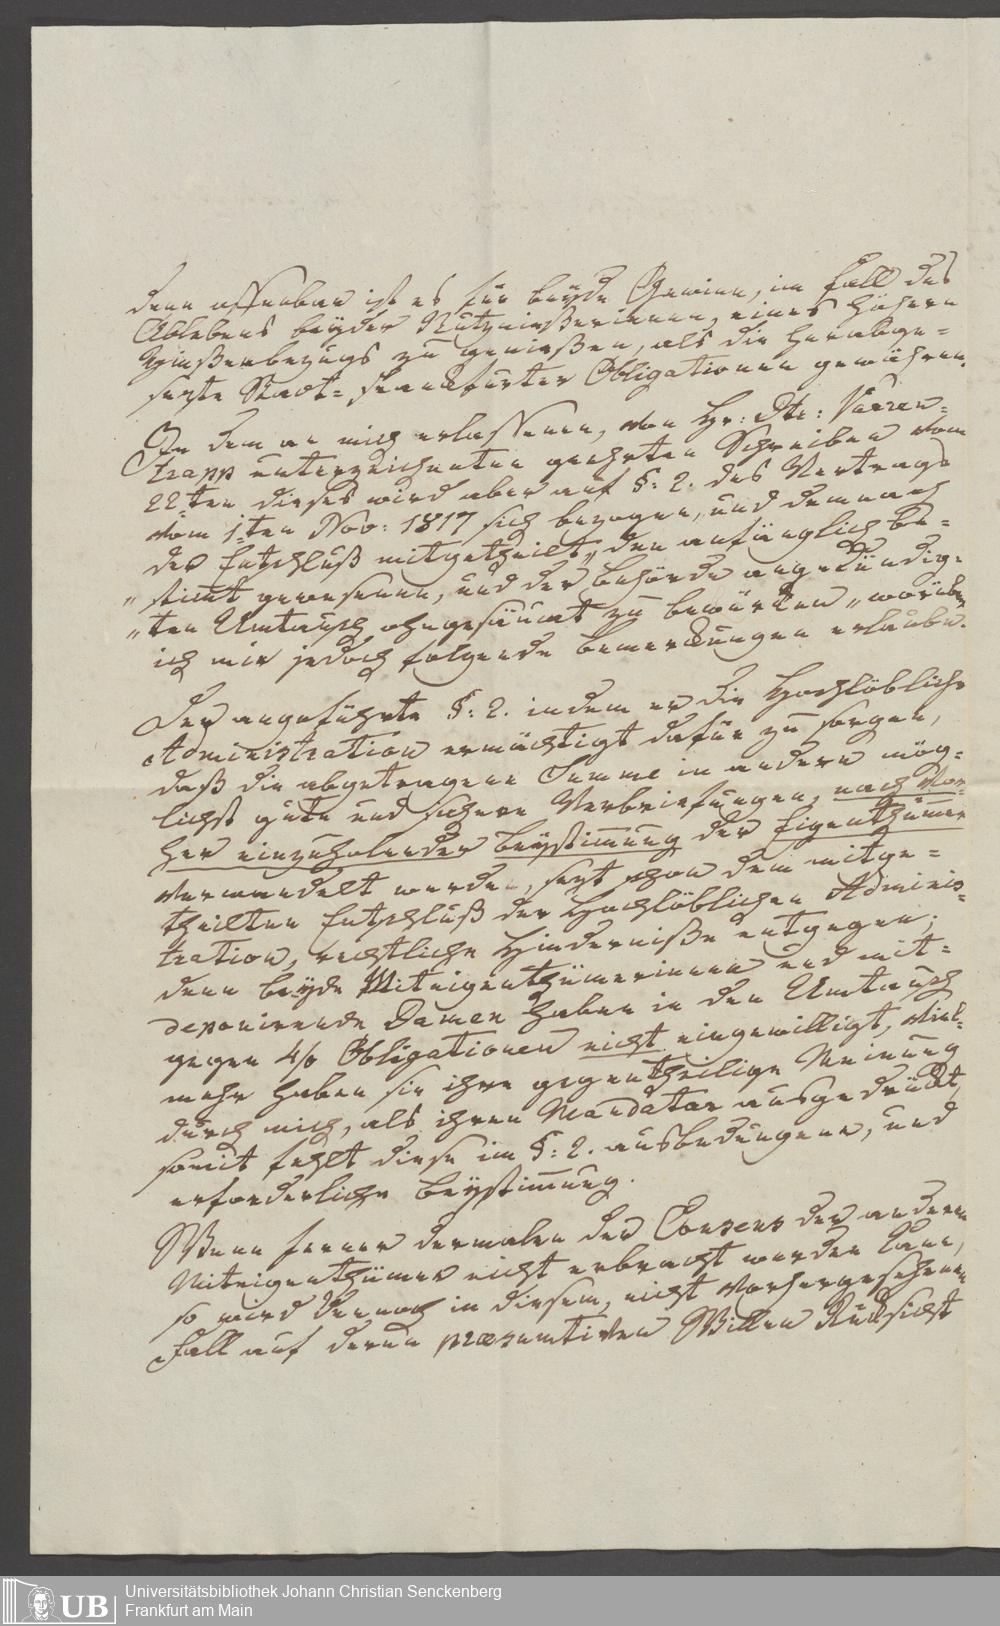 denn offenbar ist es für beÿde Gewinn, im Fall des
Ablebens beÿder Nutznießerinnen, eines höhern
Zinßenbezugs zu genießen, als die herabge=
sezte Stadt=Frankfurter Obligationen gewähren.
In dem an mich erlassenen, von Hr: Dr: Varren=
trapp unterzeichneten geehrten Schreiben vom
22ten dieses wird aber auf §: 2. des Vertrags
vom 1ten Nov: 1817 sich bezogen, und demnach
der Entschluß mitgetheilt, „den anfänglich be=
„stimt gewesenen, und der Behörde angekündig=
„ten Umtausch ohngesäumt zu bewürken„ worüber
ich mir jedoch folgende Bemerkungen erlaube.
Der angeführte §: 2. indem er die Hochlöbliche
Administration ermächtigt dafür zu sorgen,
daß die abgetragene Summe in andern mög=
lichst gute und sichere Verbriefungen, nach vor=
her einzuholender Beÿstimmung der Eigenthümer
verwandelt werden, sezt schon dem mitge=
theilten Entschluß der Hochlöblichen Adminis=
tration, rechtliche Hinderniße entgegen;
denn beÿde Miteigenthümerinnen und mit=
deponirende Damen haben in den Umtausch
gegen 4/o Obligationen nicht eingewilligt, viel=
mehr haben sie ihre gegentheilige Meinung
durch mich, als ihren Mandatar ausgedrückt,
somit fehlt diese im §: 2. ausbedungene, und
erforderliche Beÿstimmung.
Wenn ferner dermalen der Consens der andern
Miteigenthümer nicht erbracht werden kann,
so wird dennoch in diesem, nicht vorhergesehenen
Fall auf deren præsumtiven Willen Rücksicht
UB
Universitätsbibliothek Johann Christian Senckenberg
Frankfurt am Main